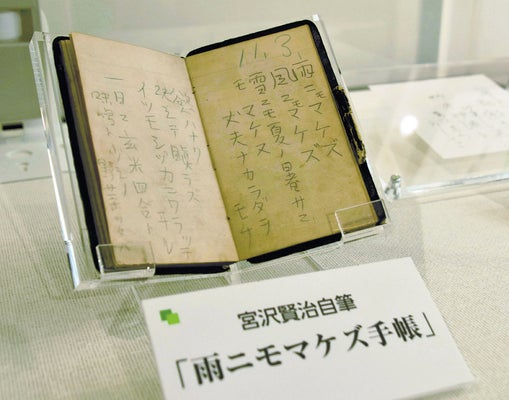 11. 3.
雨ニモマケズ
風ニモマケズ
雪ニモ夏ノ暑サニ
モ マケヌ
丈夫ナカラダヲ
モチ
慾ハナク
決シテ瞋ラズ
イツモシヅカニワラッテ
ヰル
一日ニ玄米四合ト
味噌ト少シノ野菜ヲタベ
宮沢賢治自筆
「雨ニモマケズ手帳」